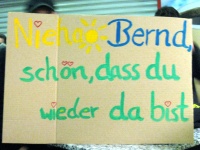 Bernd,
schön, dass du
wieder da bist